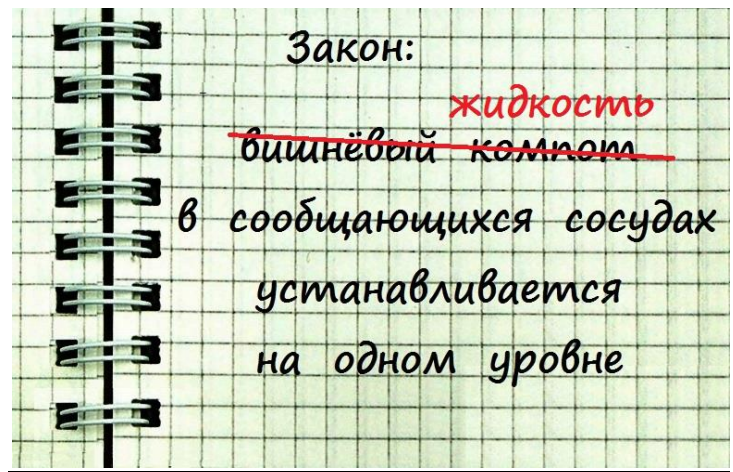 Закон:
жидкость
вишнёвый компот
в сообщающихся сосудах
устанавливается
на одном уровне